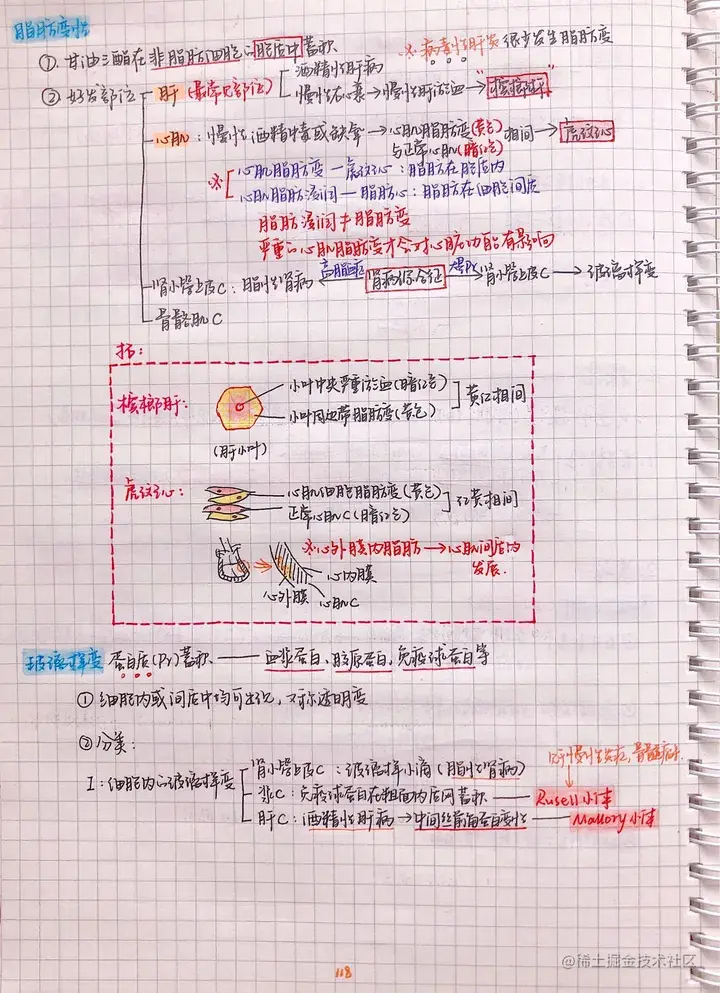 脂肪变性
①. 甘油三酯在非脂肪细胞的胞质中蓄积
※病毒性肝炎很少发生脂肪变
② 好发部位
肝(最常见部位)
酒精性肝病
慢性右心衰→慢性肝淤血→"槟榔肝"
心肌:慢性酒精中毒或缺氧→心肌脂肪变(黄色)与正常心肌(暗红色)相间→虎纹心
※心肌脂肪变—虎纹心:脂肪在胞质内
心肌脂肪浸润—脂肪心:脂肪在细胞间质
脂肪浸润≠脂肪变
严重的心肌脂肪变才会对心脏功能有影响
肾小管上皮C:脂性肾病 ←高脂血 肾病综合征 大量Pr→肾小管上皮C→玻璃样变
骨骼肌C
拓:
槟榔肝:
小叶中央严重淤血(暗红色)
小叶周边带脂肪变(黄色)
黄红相间
(肝小叶)
虎纹心:
心肌细胞脂肪变(黄色)
正常心肌C(暗红色)
红黄相间
※心外膜内脂肪→心肌间质内发展.
心内膜
心外膜
心肌C
玻璃样变 蛋白质(Pr)蓄积——血浆蛋白,胶原蛋白,免疫球蛋白等
① 细胞内或间质中均可出现,又称透明变
② 分类:
见于慢性炎症,骨髓瘤
I:细胞内的玻璃样变
肾小管上皮C:玻璃样小滴(脂性肾病)
浆C:免疫球蛋白在粗面内质网蓄积——Rusell小体
肝C:酒精性肝病→中间丝前角蛋白变性——Mallory小体
118
@稀土掘金技术社区